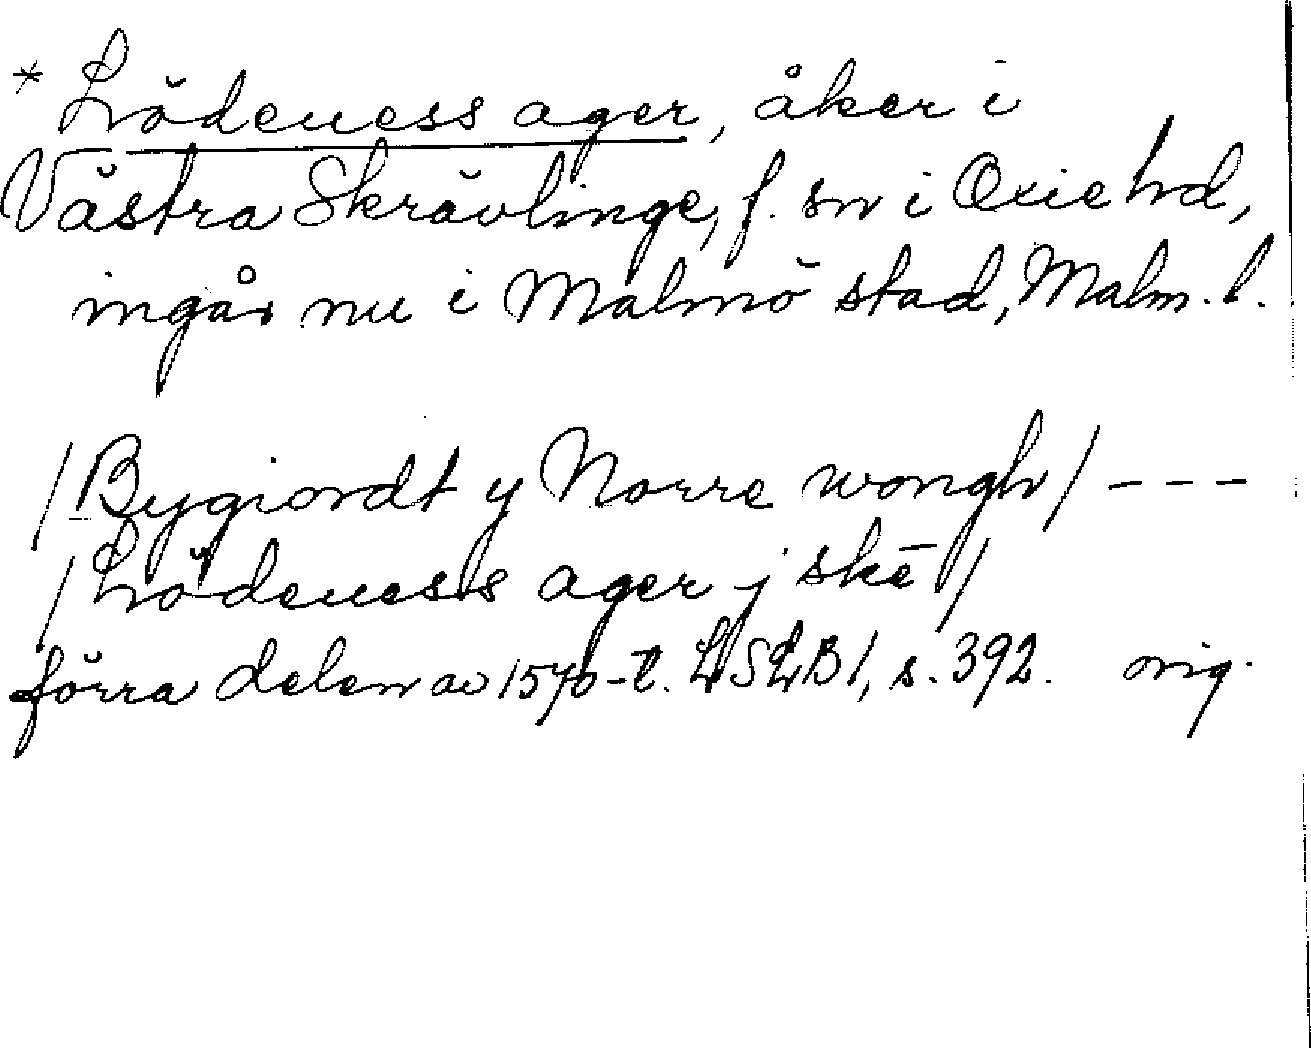 * Lödeness ager, åker i
Västra Skrävlinge, f. sn i Oxie hd,
ingår nu i Malmö stad, Malm. l.
/Bygiordt y Norre wongh/ - - -
/Lödeness ager j skē/
förra delen av 1570-t. LSLB1, s. 392. orig.